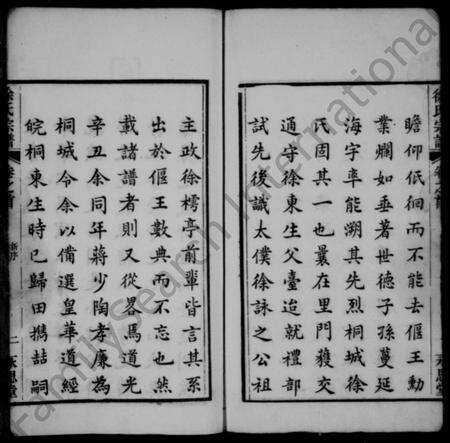 瞻仰低徊而不能去偃王勳
業爛如垂著世德子孫蔓延
海宇率能溯其先烈桐城徐
氏固其一也曩在里門獲交
通守徐東生父臺迨就禮部
試先後識太僕徐詠之公祖
主政徐樗亭前輩皆言其系
出於偃王數典而不忘也然
載諸譜者則又從畧焉道光
辛丑余同年蔣少陶孝廉為
桐城令余以備選皇華道經
皖桐東生時已歸田攜喆嗣
徐氏宗譜
卷之首
新序
二
FamilySearch International